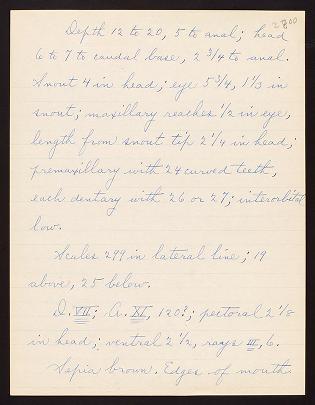 2800
Depth 12 to 20, 5 to anal; head
6 to 7 to caudal base, 2 3/4 to anal.
Snout 4 in head; eye 5 3/4, 1 1/3 in
snout; maxillary reaches 1/2 in eye,
length from snout tip 2 1/4 in head;
premaxillary with 24 curved teeth,
each dentary with 26 or 27; interorbital
low.
Scales 299 in lateral line; 19
above, 25 below.
D. VII; A. XI, 120?; pectoral 2 1/8
in head; ventral 2 1/2, rays III, 6.
Sepia brown. Edges of mouth